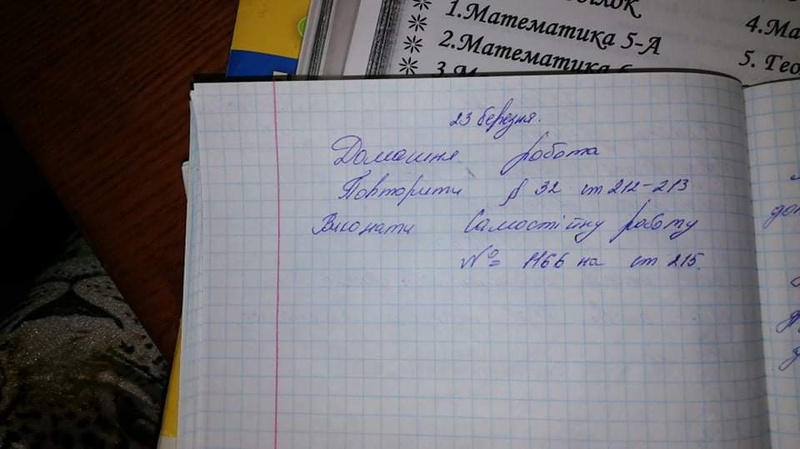 1.Математика 5-А
2.Математика
4.Ма
5. Гео
23 березня.
Домашня робота
Повторити § 32 ст 212-213
Виконати Самостійну роботу
№ 1166 на ст 215.